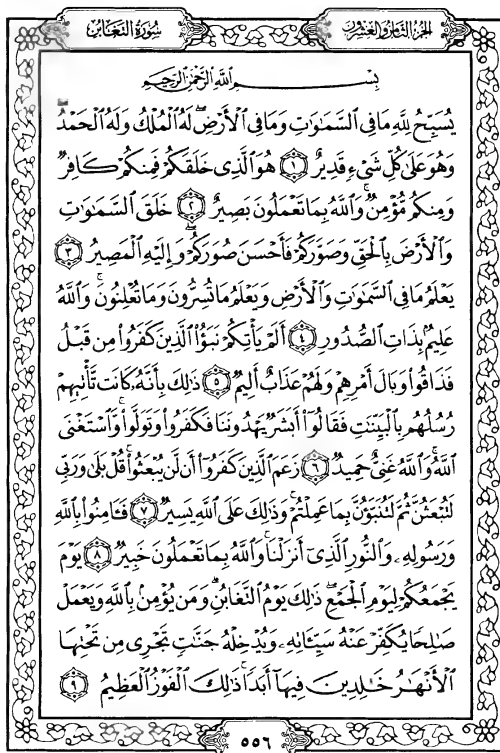 الجزء الثامن والعشرون
سورة التغابن
بسم الله الرحمن الرحيم
يُسَبِّحُ لِلَّهِ مَا فِي السَّمَٰوَٰتِ وَمَا فِي الْأَرْضِ ۖ لَهُ الْمُلْكُ وَلَهُ الْحَمْدُ ۖ
وَهُوَ عَلَىٰ كُلِّ شَيْءٍ قَدِيرٌ ١ هُوَ الَّذِي خَلَقَكُمْ فَمِنكُمْ كَافِرٌ
وَمِنكُم مُّؤْمِنٌ ۚ وَاللَّهُ بِمَا تَعْمَلُونَ بَصِيرٌ ٢ خَلَقَ السَّمَٰوَٰتِ
وَالْأَرْضَ بِالْحَقِّ وَصَوَّرَكُمْ فَأَحْسَنَ صُوَرَكُمْ ۖ وَإِلَيْهِ الْمَصِيرُ ٣
يَعْلَمُ مَا فِي السَّمَٰوَٰتِ وَالْأَرْضِ وَيَعْلَمُ مَا تُسِرُّونَ وَمَا تُعْلِنُونَ ۚ وَاللَّهُ
عَلِيمٌ بِذَاتِ الصُّدُورِ ٤ أَلَمْ يَأْتِكُمْ نَبَؤُا الَّذِينَ كَفَرُوا مِن قَبْلُ
فَذَاقُوا وَبَالَ أَمْرِهِمْ وَلَهُمْ عَذَابٌ أَلِيمٌ ٥ ذَٰلِكَ بِأَنَّهُ كَانَت تَّأْتِيهِمْ
رُسُلُهُم بِالْبَيِّنَٰتِ فَقَالُوا أَبَشَرٌ يَهْدُونَنَا فَكَفَرُوا وَتَوَلَّوا ۚ وَّاسْتَغْنَى
اللَّهُ ۚ وَاللَّهُ غَنِيٌّ حَمِيدٌ ٦ زَعَمَ الَّذِينَ كَفَرُوا أَن لَّن يُبْعَثُوا ۚ قُلْ بَلَىٰ وَرَبِّي
لَتُبْعَثُنَّ ثُمَّ لَتُنَبَّؤُنَّ بِمَا عَمِلْتُمْ ۚ وَذَٰلِكَ عَلَى اللَّهِ يَسِيرٌ ٧ فَـَٔامِنُوا بِاللَّهِ
وَرَسُولِهِ وَالنُّورِ الَّذِي أَنزَلْنَا ۚ وَاللَّهُ بِمَا تَعْمَلُونَ خَبِيرٌ ٨ يَوْمَ
يَجْمَعُكُمْ لِيَوْمِ الْجَمْعِ ۖ ذَٰلِكَ يَوْمُ التَّغَابُنِ ۗ وَمَن يُؤْمِنۢ بِاللَّهِ وَيَعْمَلْ
صَٰلِحًا يُكَفِّرْ عَنْهُ سَيِّـَٔاتِهِ وَيُدْخِلْهُ جَنَّٰتٍ تَجْرِي مِن تَحْتِهَا
الْأَنْهَٰرُ خَٰلِدِينَ فِيهَا أَبَدًا ۚ ذَٰلِكَ الْفَوْزُ الْعَظِيمُ ٩
٥٥٦